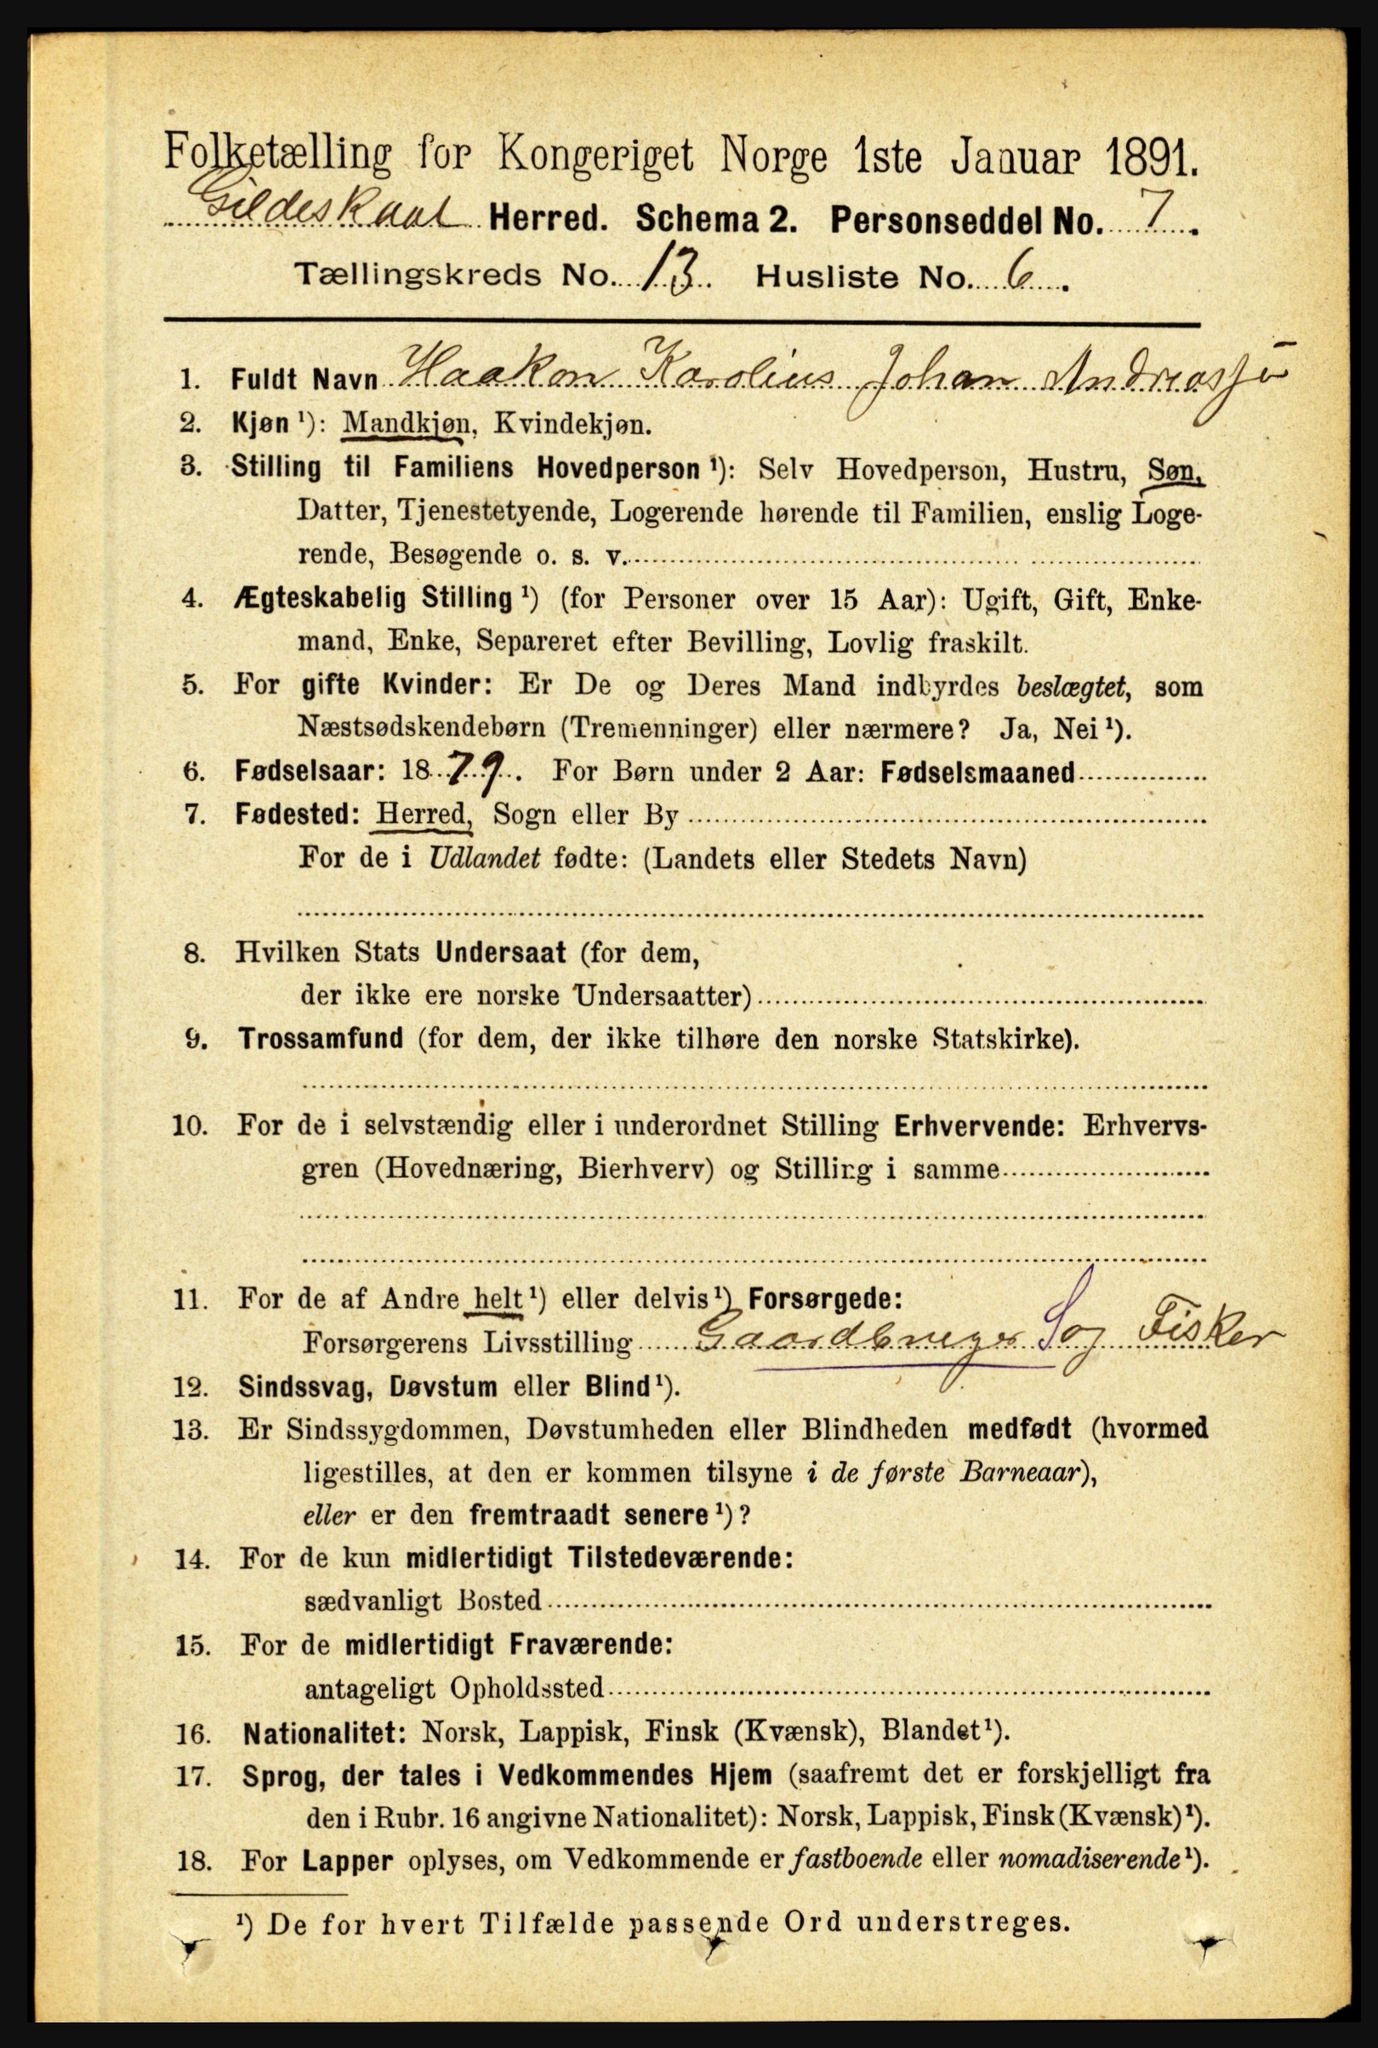 Folketælling for Kongeriget Norge 1ste Januar 1891.
Gildeskaal Herred. Schema 2. Personseddel No. 7.
Tællingskreds No. 13. Husliste No. 6.
1. Fuldt Navn Haakon Karolius Johan Andreass̄en
2. Kjøn ¹): Mandkjøn, Kvindekjøn.
3. Stilling til Familiens Hovedperson ¹): Selv Hovedperson, Hustru, Søn,
Datter, Tjenestetyende, Logerende hørende til Familien, enslig Loge-
rende, Besøgende o. s. v.
4. Ægteskabelig Stilling ¹) (for Personer over 15 Aar): Ugift, Gift, Enke-
mand, Enke, Separeret efter Bevilling, Lovlig fraskilt.
5. For gifte Kvinder: Er De og Deres Mand indbyrdes beslægtet, som
Næstsødskendebørn (Tremenninger) eller nærmere? Ja, Nei ¹).
6. Fødselsaar: 1879. For Børn under 2 Aar: Fødselsmaaned
7. Fødested: Herred, Sogn eller By
For de i Udlandet fødte: (Landets eller Stedets Navn)
8. Hvilken Stats Undersaat (for dem,
der ikke ere norske Undersaatter)
9. Trossamfund (for dem, der ikke tilhøre den norske Statskirke).
10. For de i selvstændig eller i underordnet Stilling Erhvervende: Erhvervs-
gren (Hovednæring, Bierhverv) og Stilling i samme
11. For de af Andre helt ¹) eller delvis ¹) Forsørgede:
Forsørgerens Livsstilling Gaardbruger S og Fisker
12. Sindssvag, Døvstum eller Blind ¹).
13. Er Sindssygdommen, Døvstumheden eller Blindheden medfødt (hvormed
ligestilles, at den er kommen tilsyne i de første Barneaar),
eller er den fremtraadt senere ¹)?
14. For de kun midlertidigt Tilstedeværende:
sædvanligt Bosted
15. For de midlertidigt Fraværende:
antageligt Opholdssted
16. Nationalitet: Norsk, Lappisk, Finsk (Kvænsk), Blandet ¹).
17. Sprog, der tales i Vedkommendes Hjem (saafremt det er forskjelligt fra
den i Rubr. 16 angivne Nationalitet): Norsk, Lappisk, Finsk (Kvænsk) ¹).
18. For Lapper oplyses, om Vedkommende er fastboende eller nomadiserende ¹).
¹) De for hvert Tilfælde passende Ord understreges.